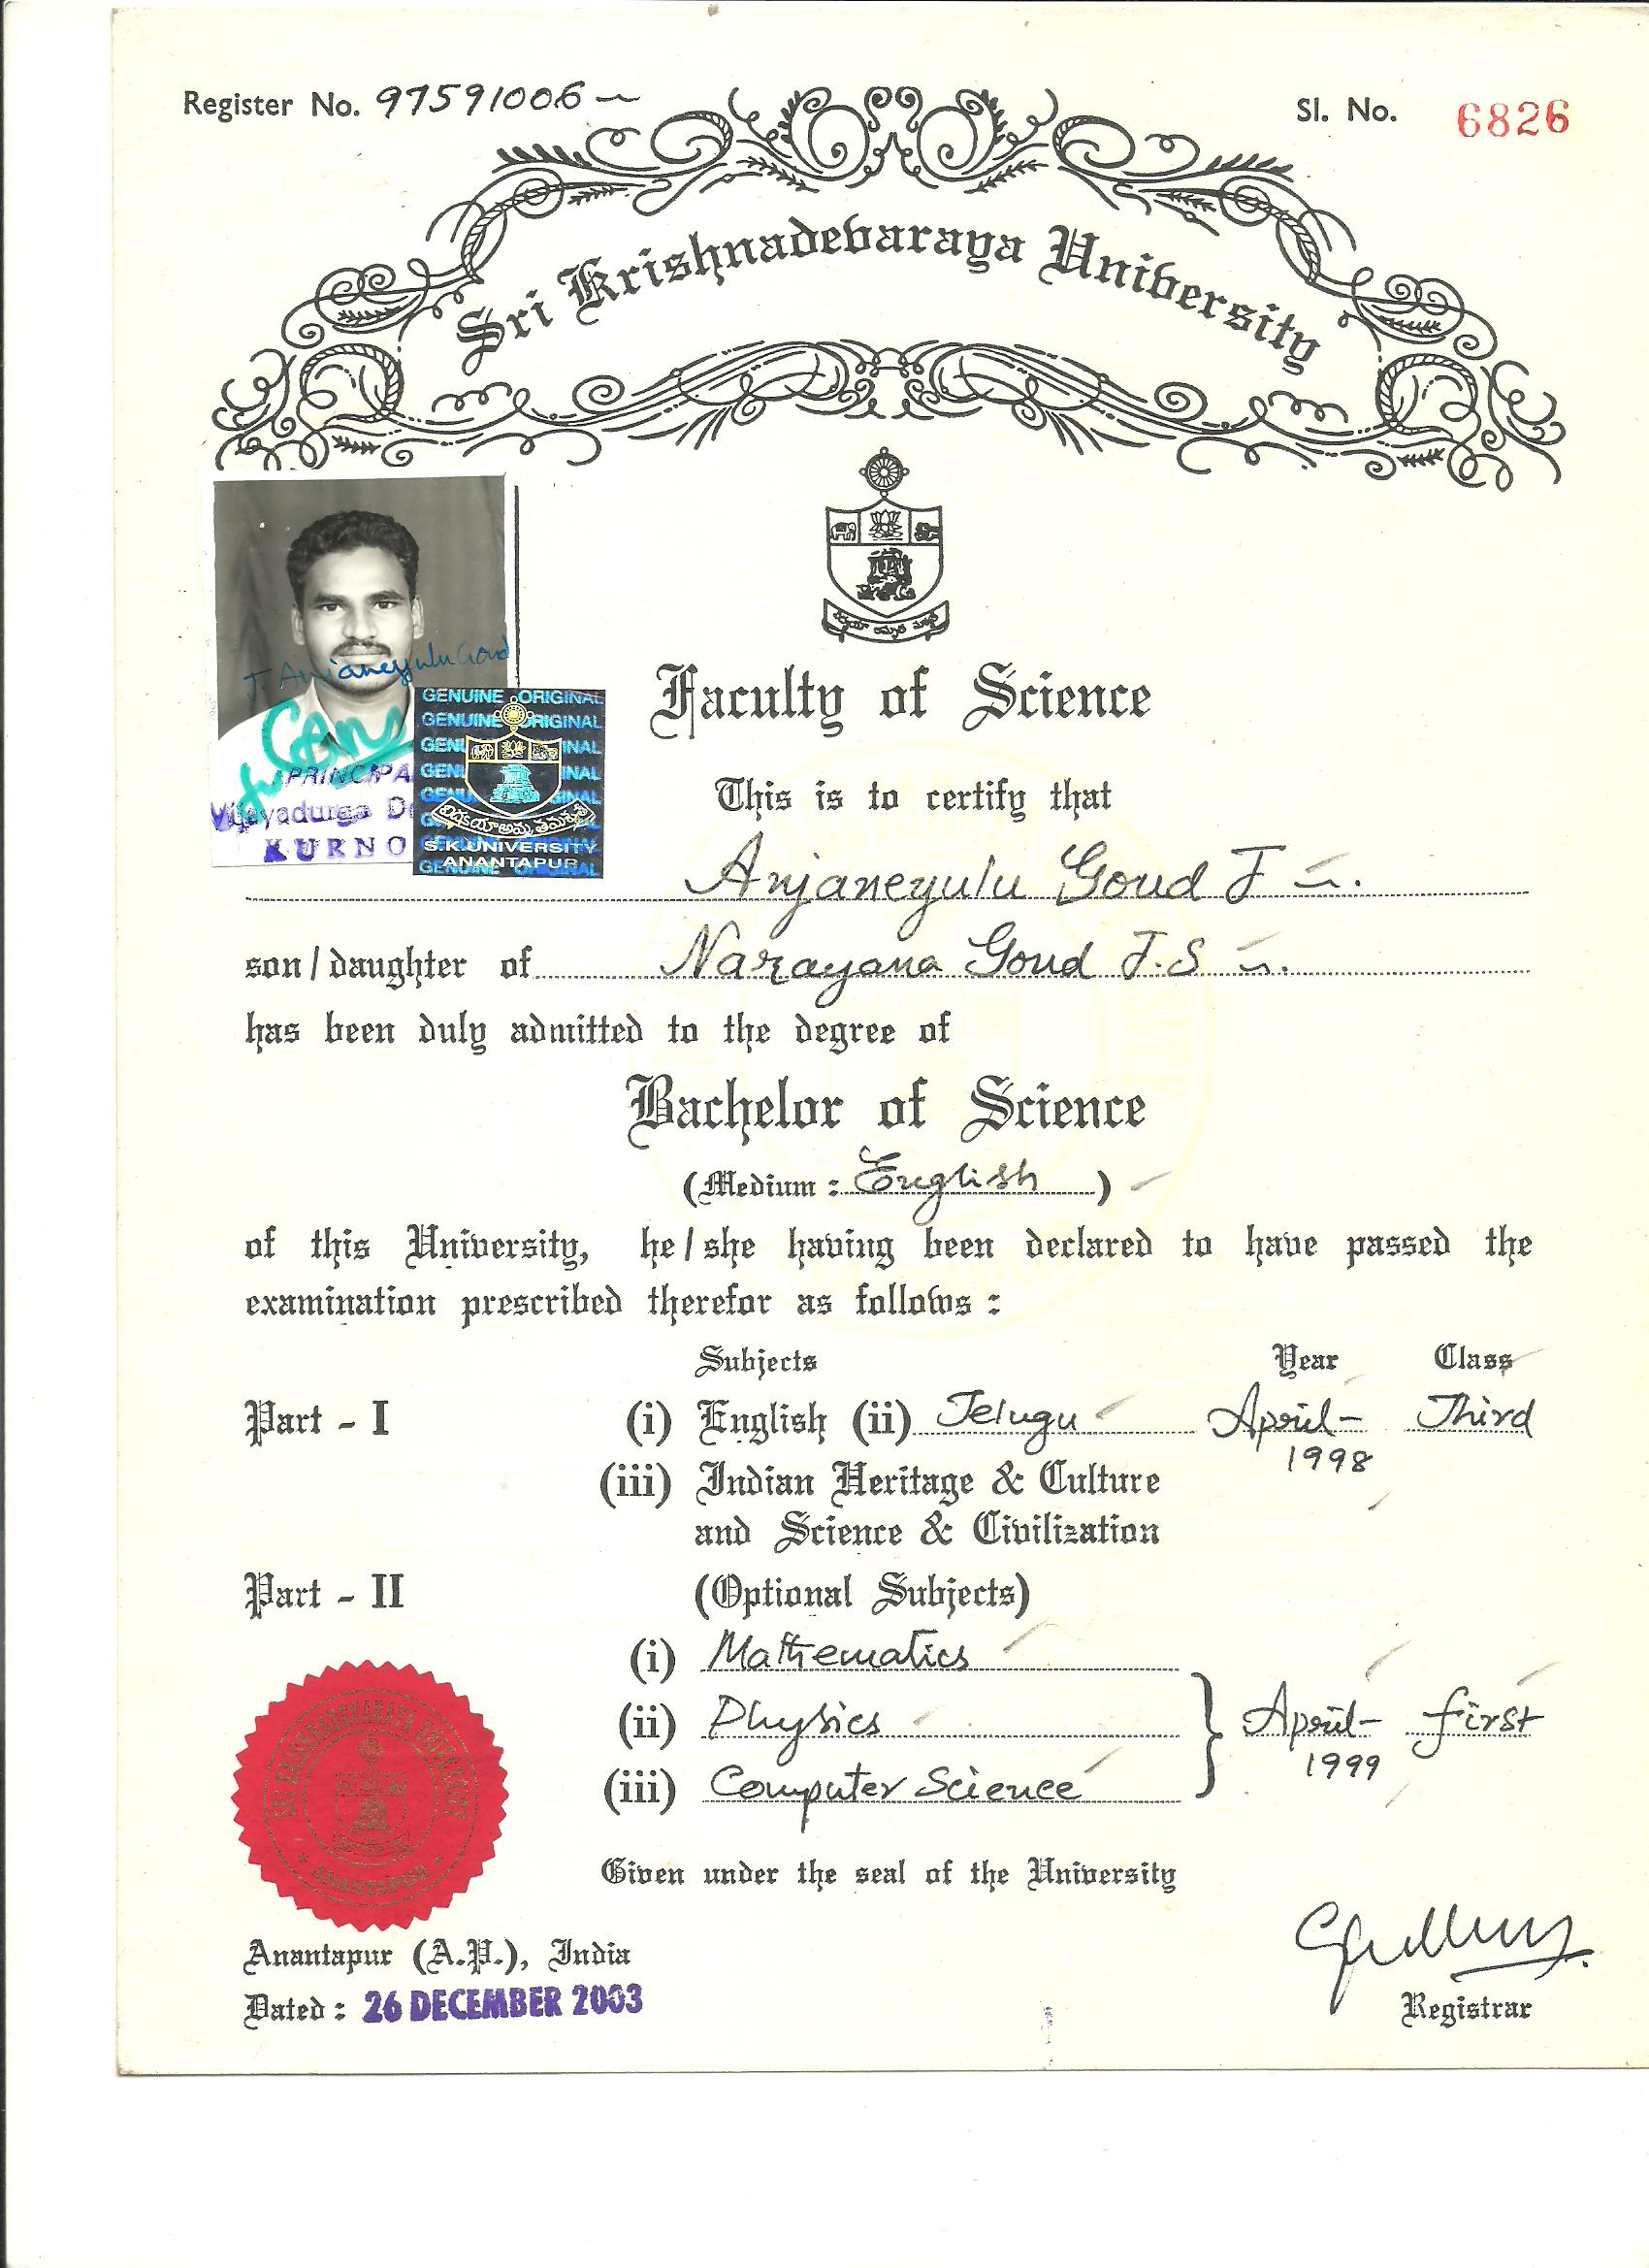 Register No. 97591006
Sl. No. 6826
Sri Krishnadevaraya University
J. Anjaneyulu Goud
PRINCIPA
Vijayadurga De
KURNO
GENUINE ORIGINAL
GENUINE ORIGINAL
S.K.UNIVERSITY
ANANTAPUR
Faculty of Science
This is to certify that
Anjaneyulu Goud J
son/daughter of Narayana Goud J.S
has been duly admitted to the degree of
Bachelor of Science
(Medium : English)
of this University, he/she having been declared to have passed the
examination prescribed therefor as follows :
Subjects Year Class
Part - I (i) English (ii) Telugu April- Third
1998
(iii) Indian Heritage & Culture
and Science & Civilization
Part - II (Optional Subjects)
(i) Mathematics
(ii) Physics April- First
1999
(iii) Computer Science
SRI KRISHNADEVARAYA UNIVERSITY
ANANTAPUR
Given under the seal of the University
Anantapur (A.P.), India
Dated : 26 DECEMBER 2003
Registrar